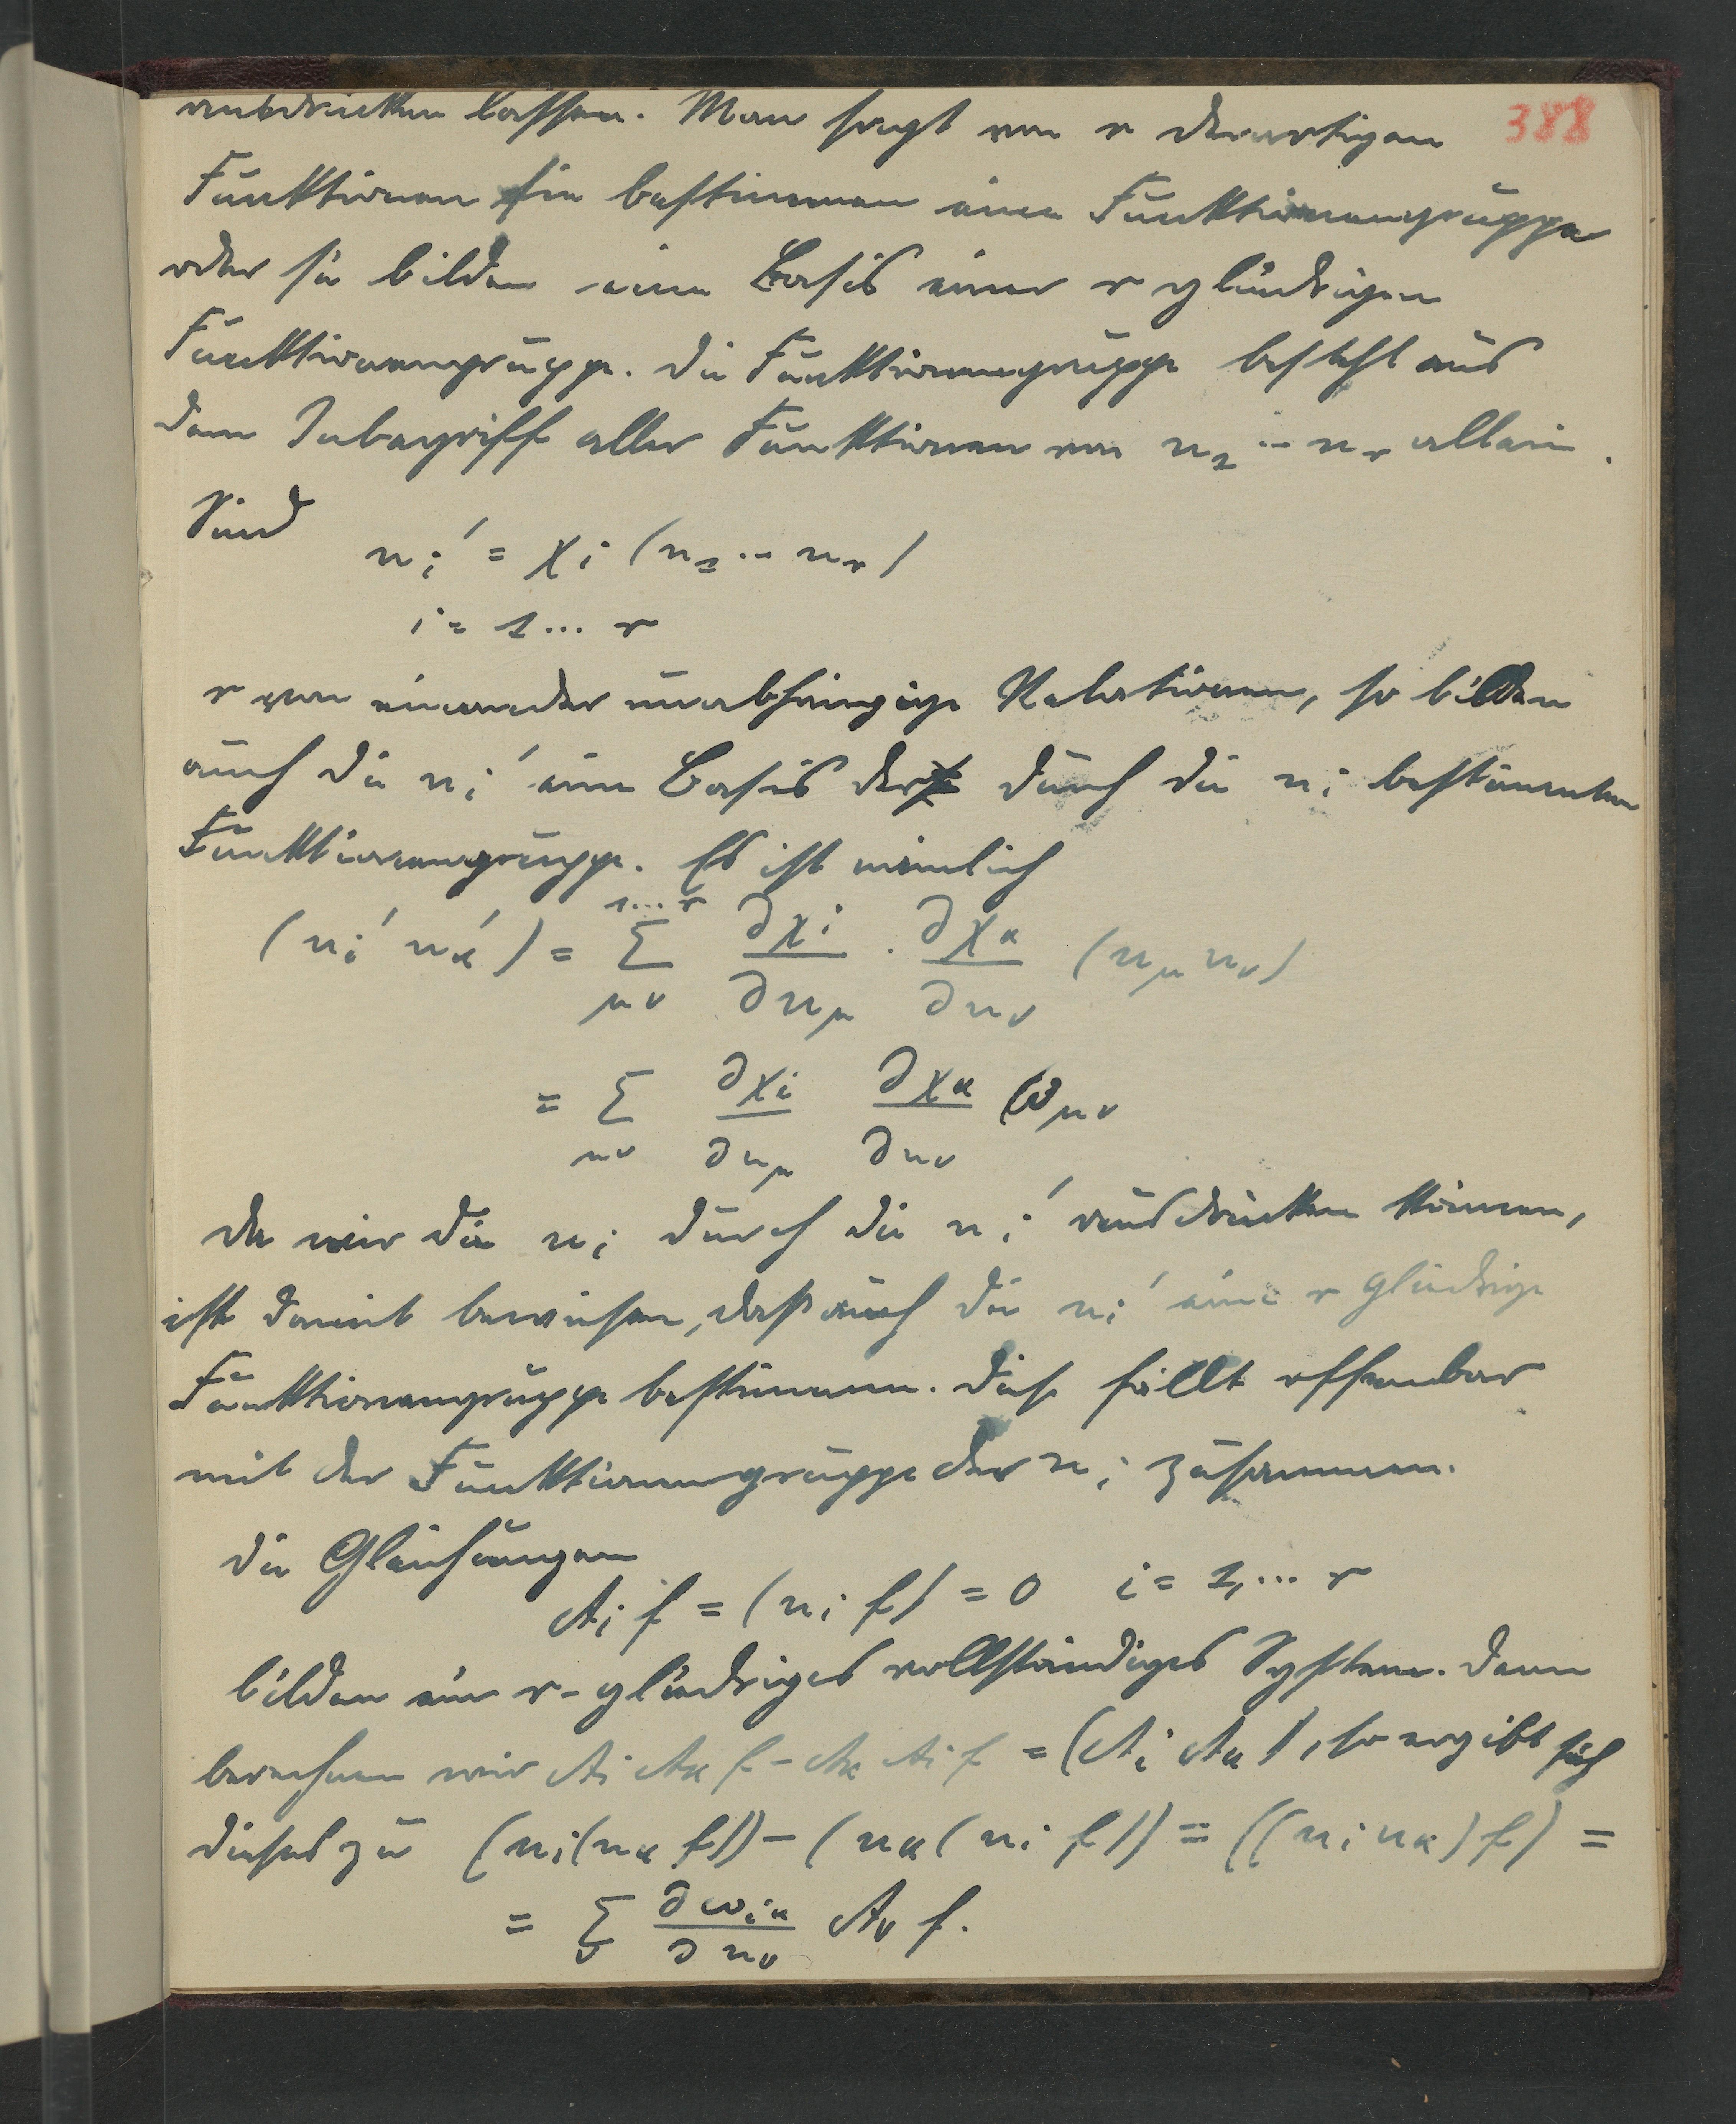 388
ausdrücken lassen. Man sagt von r derartigen
Funktionen sie bestimmen eine Funktionengruppe
oder sie bilden eine Basis einer r gliedrigen
Funktionengruppe. Die Funktionengruppe besteht aus
dem Inbegriff aller Funktionen von u₁ ... uᵣ allein.
Sind
uᵢ' = χᵢ (u₁ ... uᵣ)
i = 1 ... r
r von einander unabhängige Relationen, so bilden
auch die uᵢ' eine Basis der durch die uᵢ bestimmten
Funktionengruppe. Es ist nämlich
(uᵢ' uₖ') = Σ_{μν}^{1...r} ∂χᵢ/∂u_μ · ∂χₖ/∂u_ν (u_μ u_ν)
= Σ_{μν} ∂χᵢ/∂u_μ ∂χₖ/∂u_ν ω_{μν}
Da wir die uᵢ durch die uᵢ' ausdrücken können,
ist damit bewiesen, daß auch die uᵢ' eine r gliedrige
Funktionengruppe bestimmen. Diese fällt offenbar
mit der Funktionengruppe der uᵢ zusammen.
Die Gleichungen
Aᵢ f = (uᵢ f) = 0 i = 1, ... r
bilden ein r-gliedriges vollständiges System. Denn
berechnen wir Aᵢ Aₖ f - Aₖ Aᵢ f = (Aᵢ Aₖ), so ergibt sich
dieses zu (uᵢ(uₖ f)) - (uₖ(uᵢ f)) = ((uᵢ uₖ) f) =
= Σ_ν ∂ω_{iκ}/∂u_ν A_ν f.